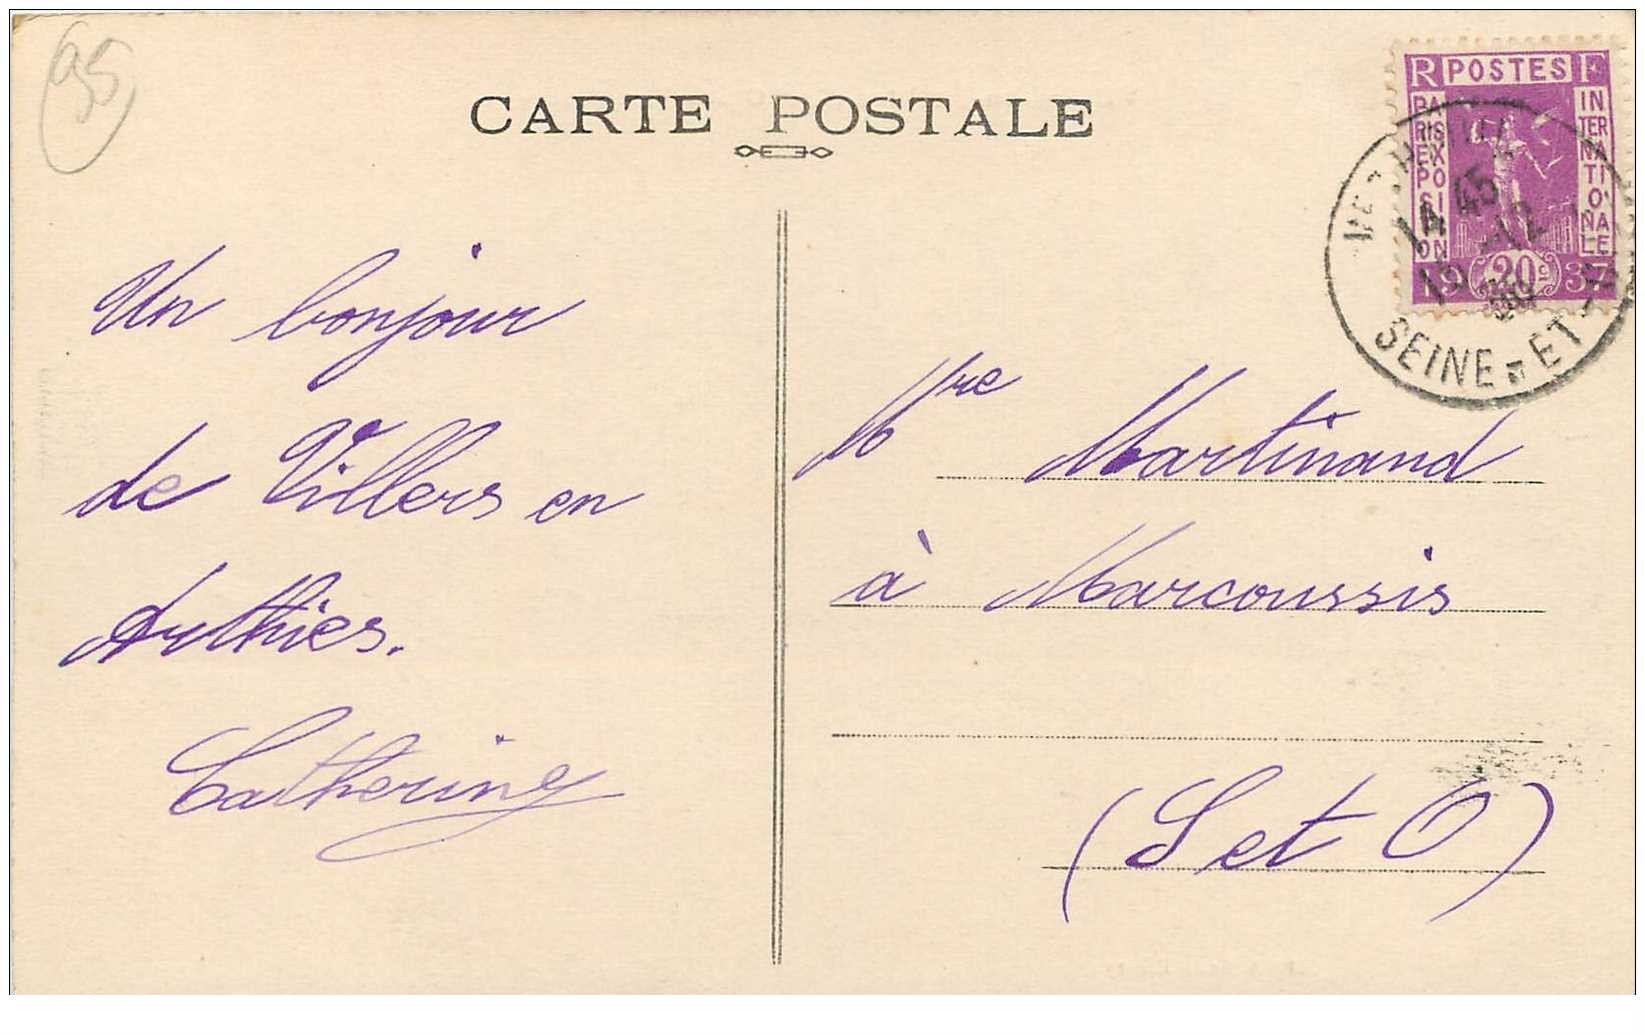 95
CARTE POSTALE
R POSTES F
PARIS EXPOSITION
INTERNATIONALE
19 20c 37
14 45
12
SEINE-ET-
Un bonjour
de Villers en
Arthies.
Catherine
Mre Martinand
à Marcoussis
(S et O)